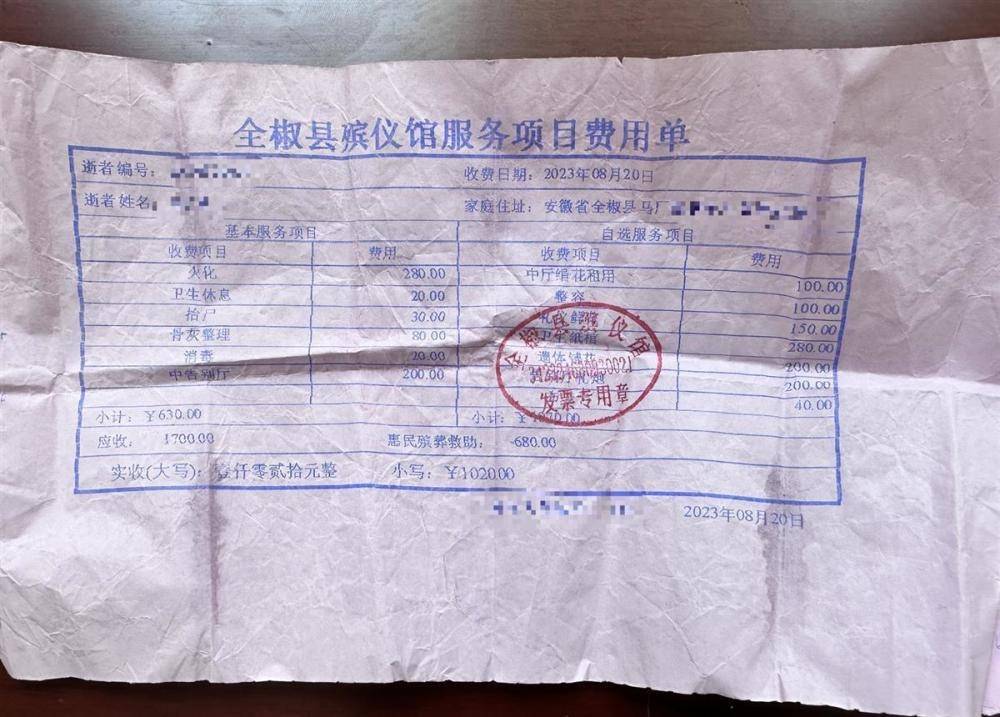 全椒县殡仪馆服务项目费用单
逝者编号： 收费日期：2023年08月20日
逝者姓名： 家庭住址：安徽省全椒县马厂
基本服务项目 自选服务项目
收费项目 费用 收费项目 费用
火化 280.00 中厅绢花租用 100.00
卫生休息 20.00 整容 100.00
抬尸 30.00 150.00
骨灰整理 80.00 卫生纸棺 280.00
消毒 20.00 遗体铺花 200.00
中告别厅 200.00 200.00
40.00
小计：￥630.00 小计：
应收： 1700.00 惠民殡葬救助： -680.00
实收(大写)：壹仟零贰拾元整 小写：￥1020.00
2023年08月20日
全椒县殡仪馆
发票专用章